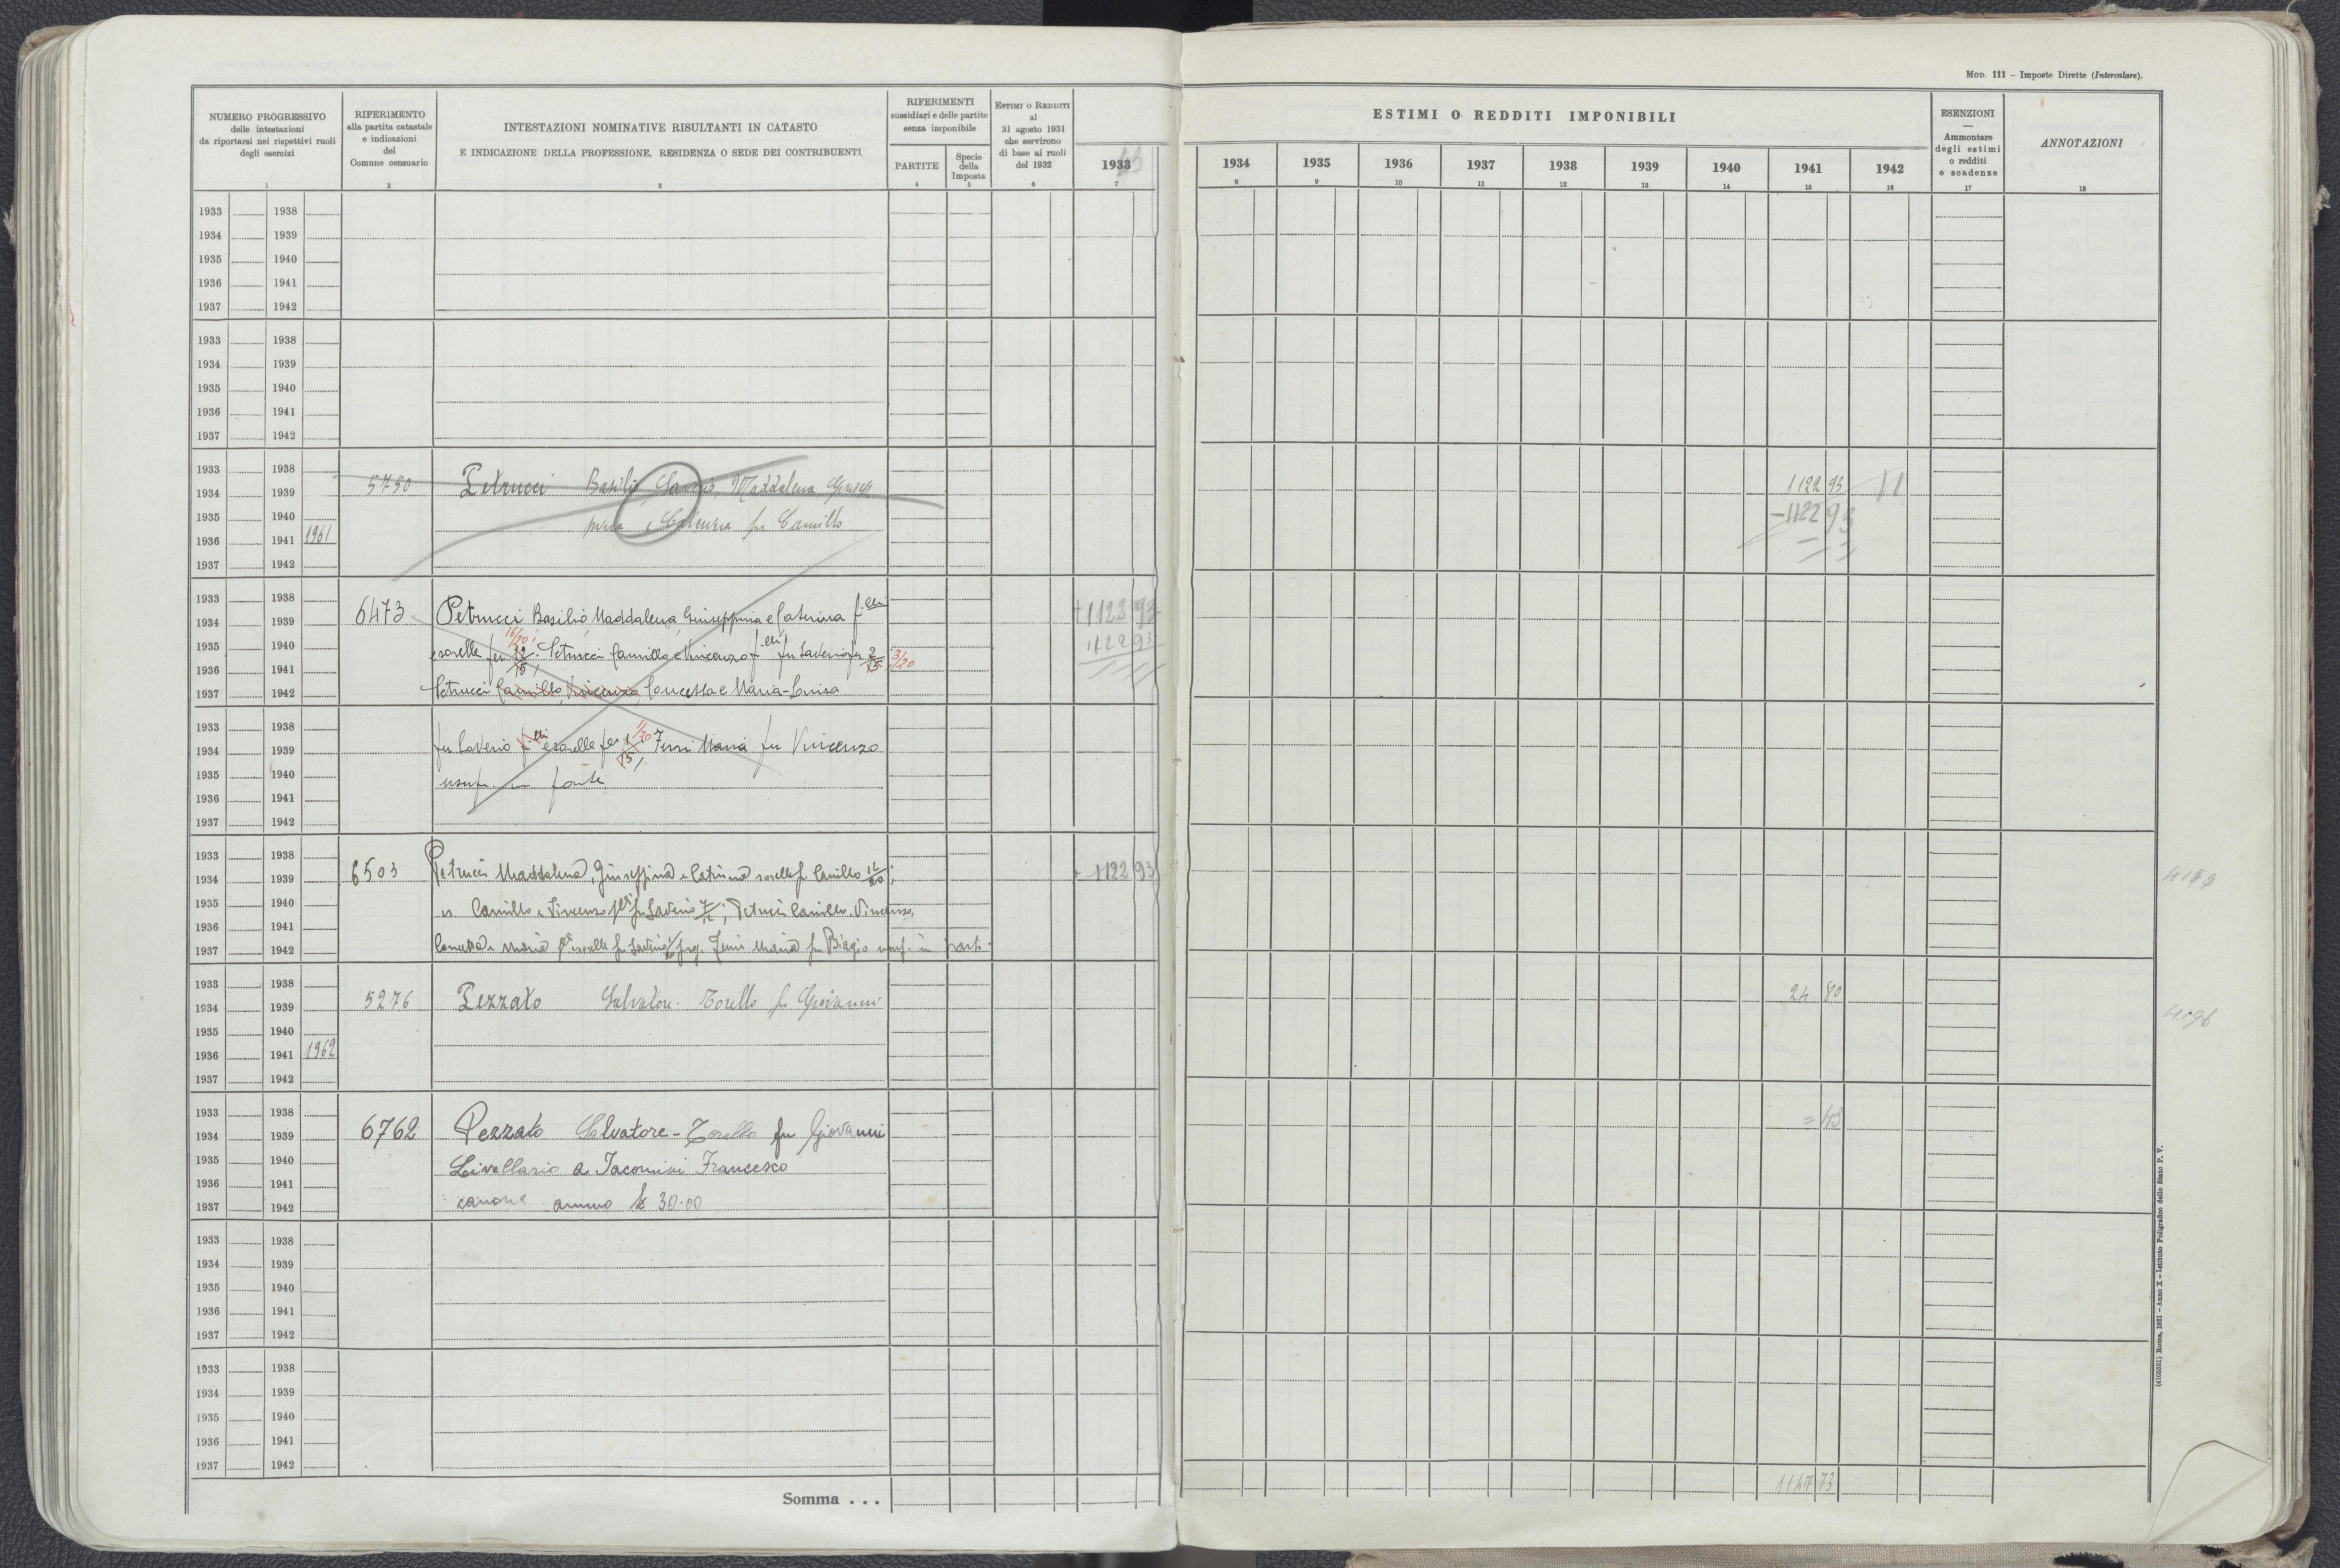 MOD. 111 – Imposte Dirette (Intercalare).
NUMERO PROGRESSIVO
delle intestazioni
da riportarsi nei rispettivi ruoli
degli esercizi
1
RIFERIMENTO
alla partita catastale
e indicazioni
del
Comune censuario
2
INTESTAZIONI NOMINATIVE RISULTANTI IN CATASTO
E INDICAZIONE DELLA PROFESSIONE, RESIDENZA O SEDE DEI CONTRIBUENTI
3
RIFERIMENTI
sussidiari e delle partite
senza imponibile
PARTITE
4
Specie
della
Imposta
5
ESTIMI O REDDITI
al
31 agosto 1931
che servirono
di base ai ruoli
del 1932
6
ESTIMI O REDDITI IMPONIBILI
1933
7
1934
8
1935
9
1936
10
1937
11
1938
12
1939
13
1940
14
1941
15
1942
16
ESENZIONI
—
Ammontare
degli estimi
o redditi
e scadenze
17
ANNOTAZIONI
18
1933 1938
1934 1939
1935 1940
1936 1941
1937 1942
1933 1938
1934 1939
1935 1940
1936 1941
1937 1942
1933 1938
1934 1939 5750 Petrucci Basilio Maddalena, 1122 93
1935 1940 fu Camillo –1122 93
1936 1941 1961
1937 1942
1933 1938
1934 1939 6473 Petrucci Basilio, Maddalena, Giuseppina e Caterina f.lli +1122 93
16/20
1935 1940 e sorelle per 12/15; Petrucci Camillo e Vincenzo f.lli fu Saverio per 2/15 3/20 1122 93
1936 1941
1937 1942 Petrucci Camillo, Vincenzo, Concetta e Maria-Luisa
1933 1938
1934 1939 fu Saverio f.lli e sorelle per 1/15 1/20 Ferri Maria fu Vincenzo
1935 1940
1936 1941 usuf. in parte
1937 1942
1933 1938
1934 1939 6503 Petrucci Maddalena, Giuseppina e Caterina sorelle fu Camillo +1122 93
1935 1940 Camillo e Vincenzo f.lli fu Saverio; Petrucci Camillo, Vincenzo,
1936 1941
1937 1942 Concetta e Maria f.lli e sorelle fu Saverio Ferri Maria fu Biagio usuf. in parte
1933 1938
1934 1939 5276 Pezzato Salvatore-Torello fu Giovanni 24 80
1935 1940
1936 1941 1962
1937 1942
1933 1938
1934 1939 6762 Pezzato Salvatore-Torello fu Giovanni = 43
1935 1940 Livellario a Iacomini Francesco
1936 1941
1937 1942 canone annuo £ 30.00
1933 1938
1934 1939
1935 1940
1936 1941
1937 1942
1933 1938
1934 1939
1935 1940
1936 1941
1937 1942
Somma . . . 1147 73
(4103581) Roma, 1931 – Anno X – Istituto Poligrafico dello Stato P. V.